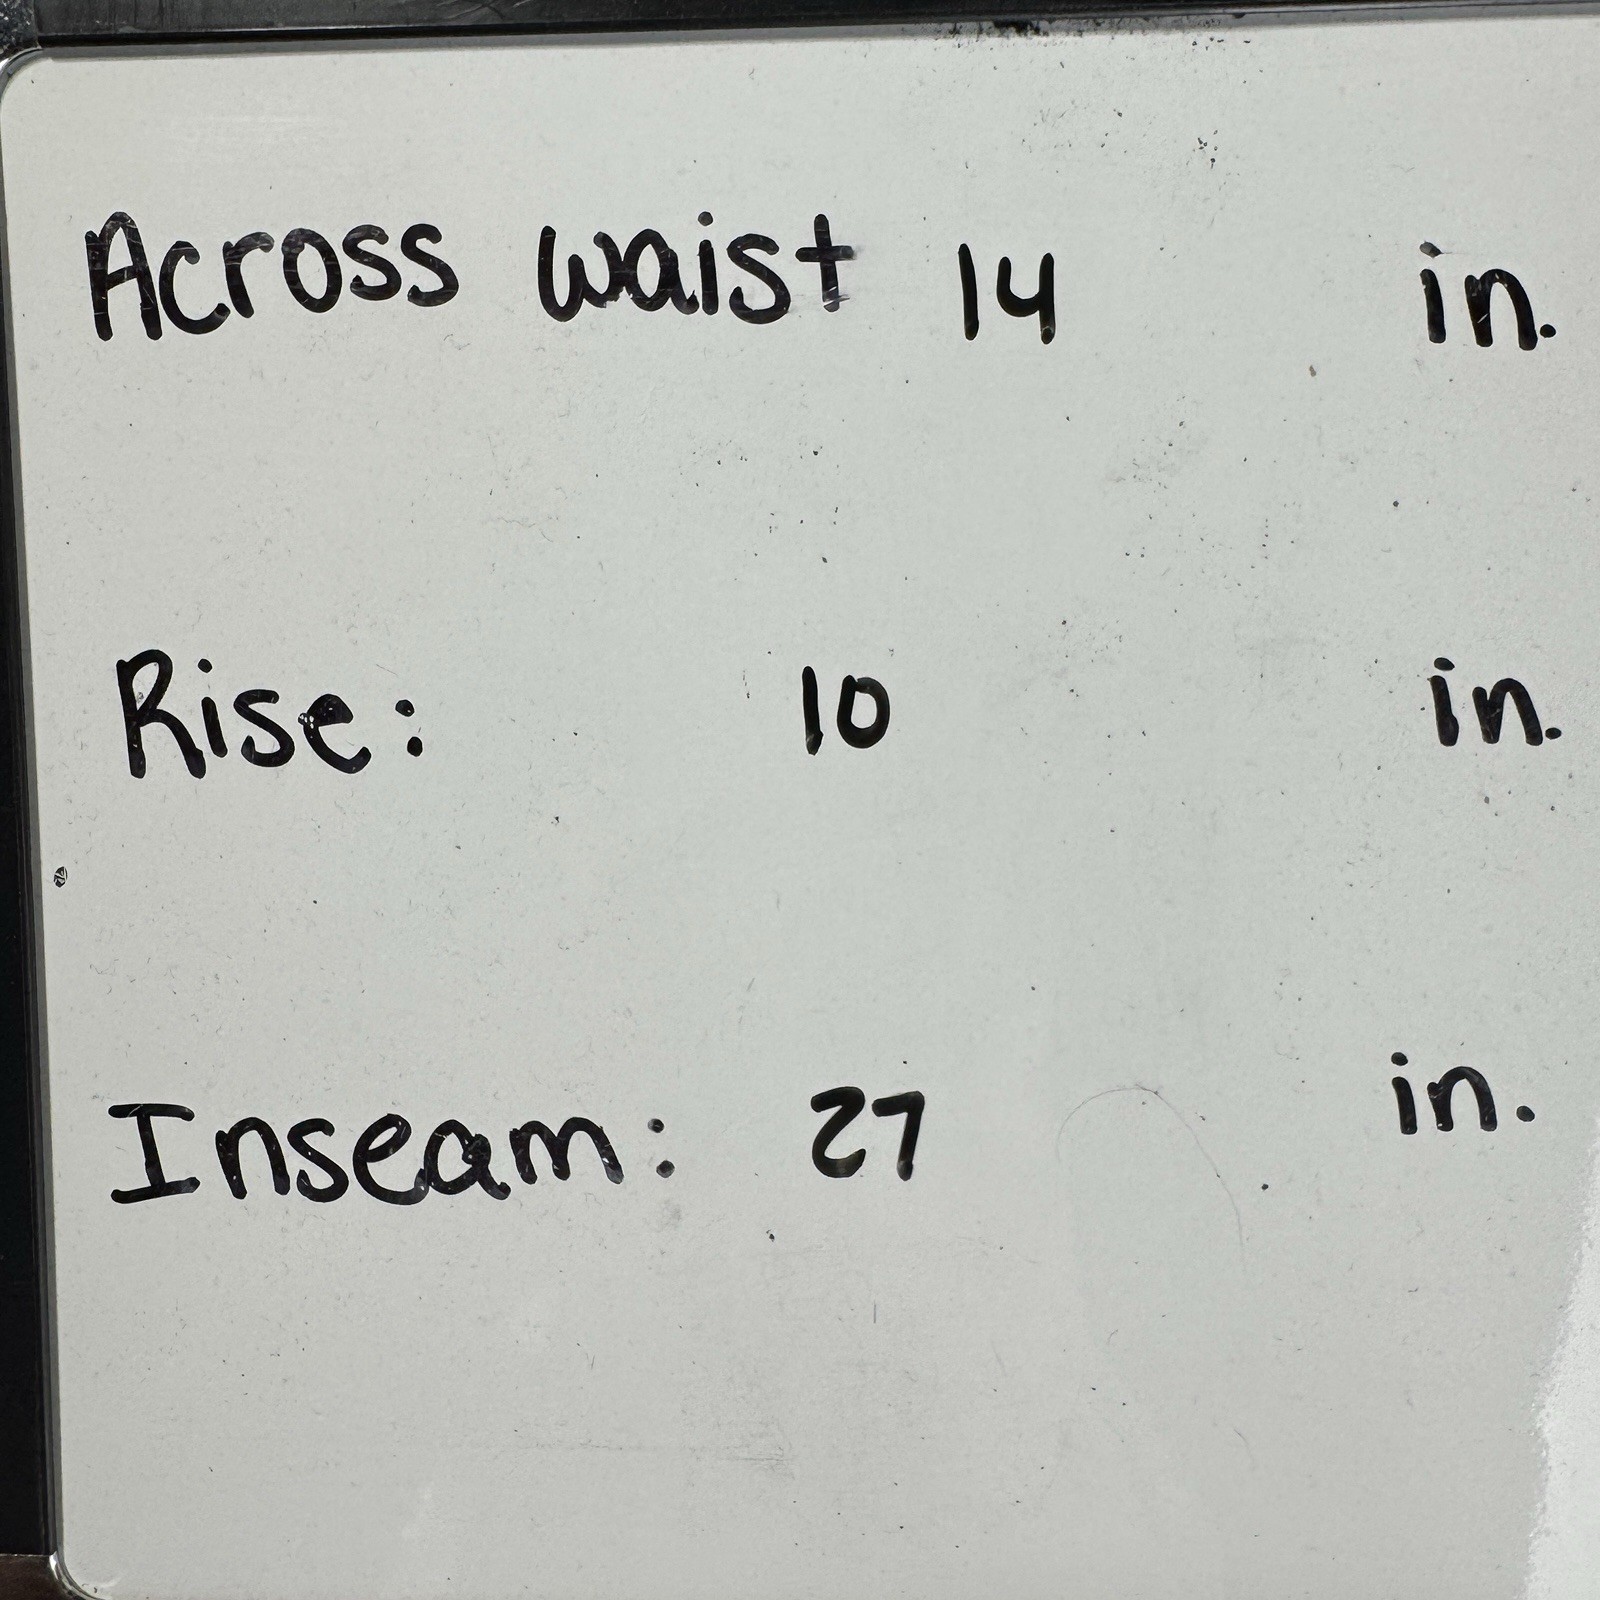 Across waist 14 in.
Rise: 10 in.
Inseam: 27 in.